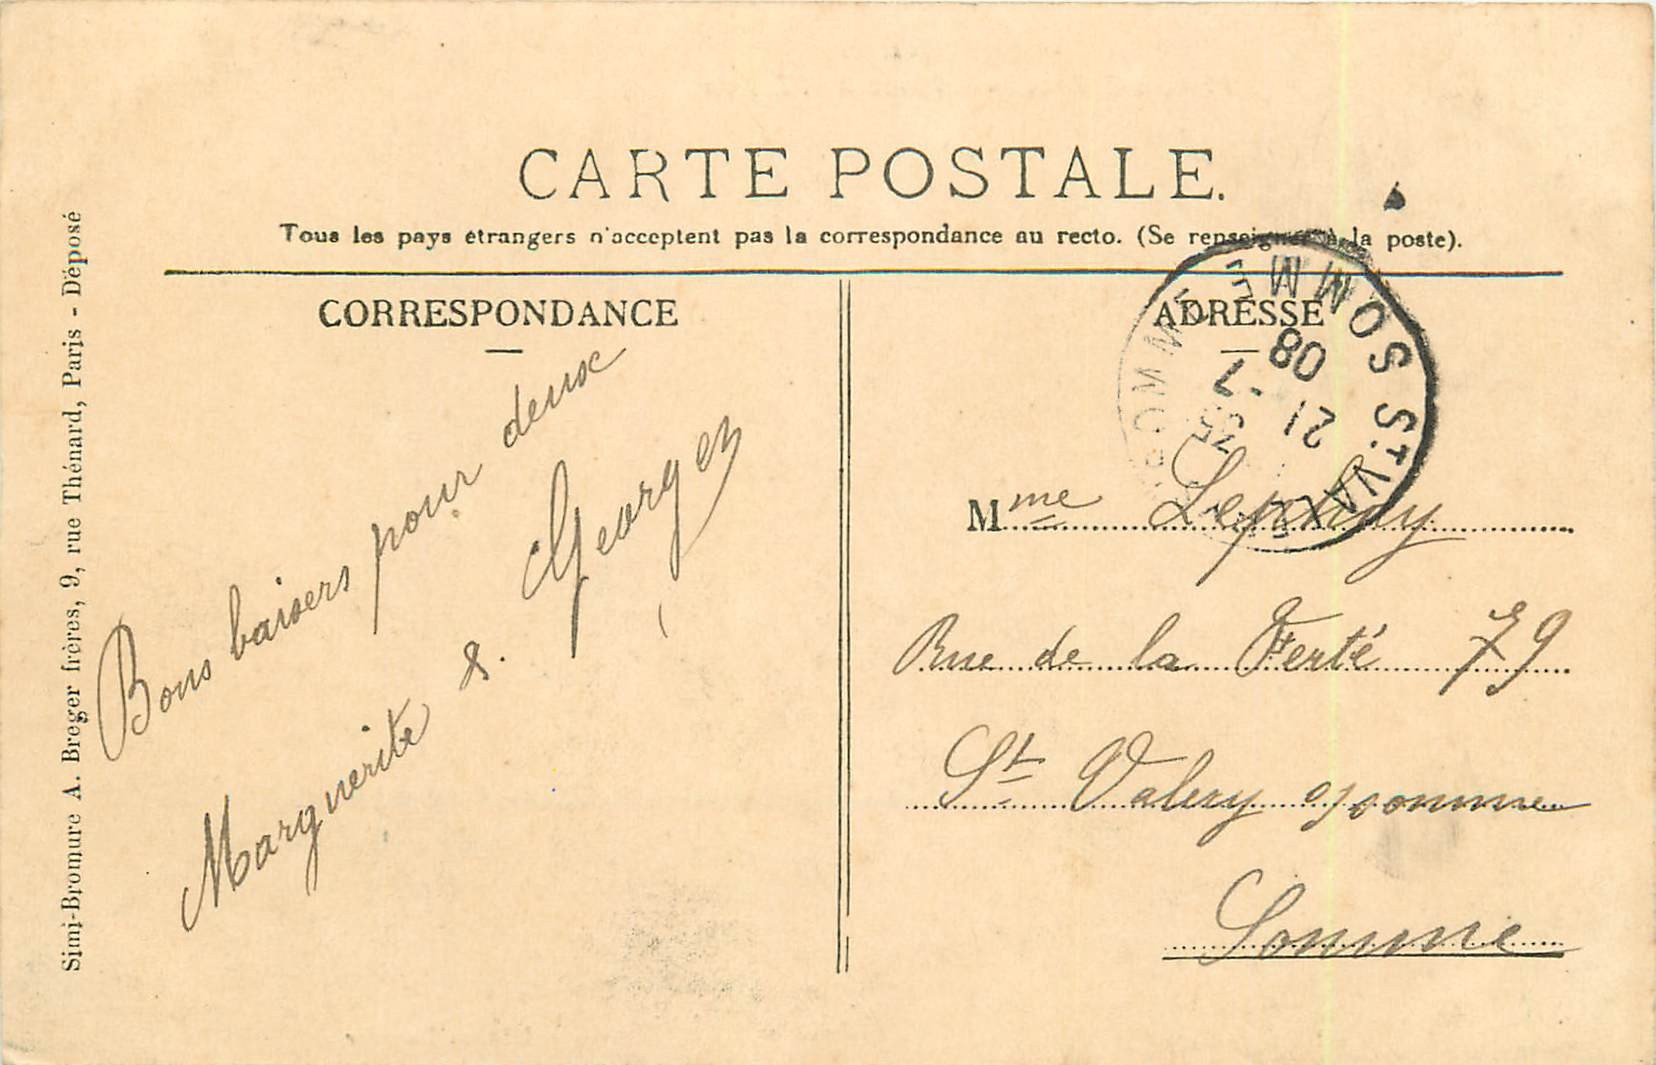 CARTE POSTALE.
Tous les pays étrangers n'acceptent pas la correspondance au recto. (Se renseigner à la poste).
CORRESPONDANCE
Bons baisers pour deux
Marguerite & Georges
ADRESSE
Mme
Rue de la Ferté 79
St Valery s/somme
Somme
21 -7
08
Simi-Bromure A. Breger frères, 9, rue Thénard, Paris - Déposé